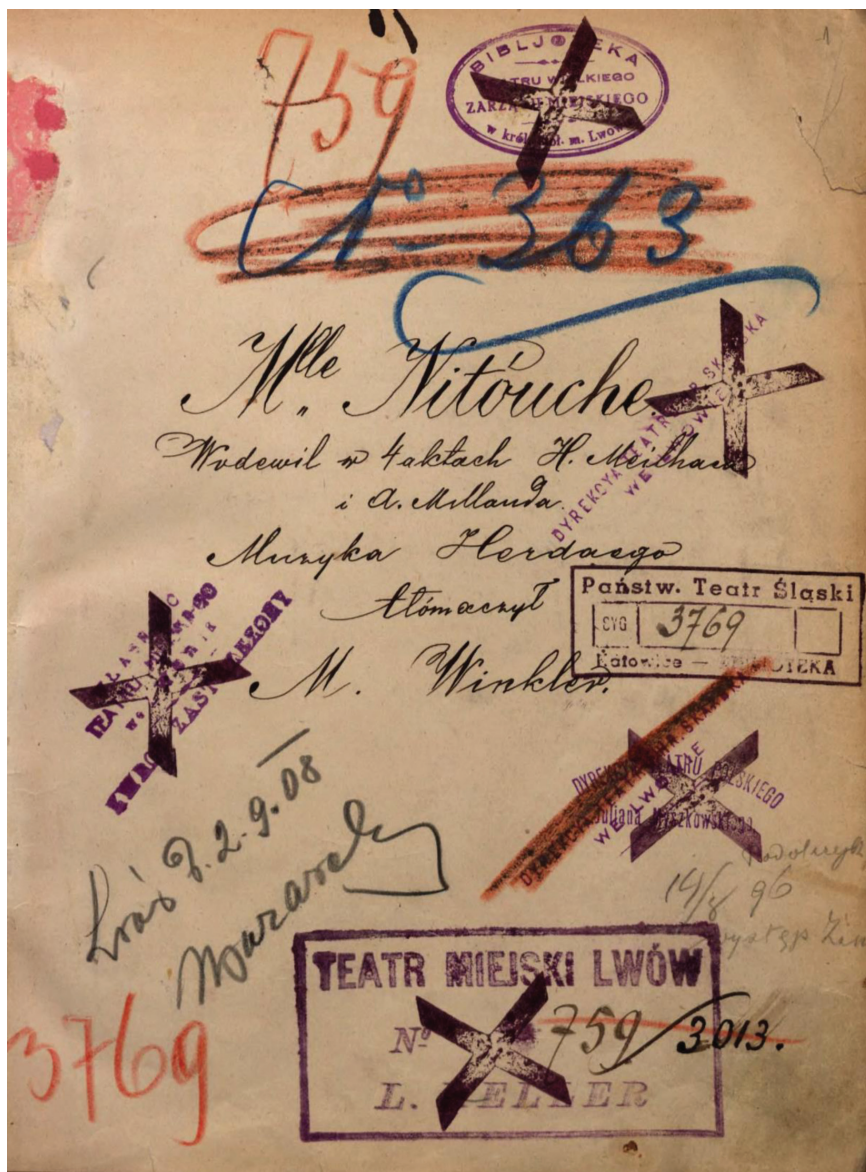 1
759
BIBLJOTEKA
TEATRU WIELKIEGO
ZARZĄDU MIEJSKIEGO
w król. stoł. m. Lwowie
No 363
Mlle Nitouche
Wodewil w 4 aktach H. Meilhaca
i A. Millauda.
Muzyka Herdaego
tłómaczył
M. Winkler.
DYREKCYA TEATRU HR. SKARBKA
WE LWOWIE
Państw. Teatr Śląski
SYG 3769
Katowice — BIBLIOTEKA
TEATRU
ZASTRZEŻONY
DYREKCYA TEATRU HR. SKARBKA
WE LWOWIE
DYREKCYA TEATRU POLSKIEGO
Juliana Myszkowskiego
2.9.08
14/8 96
występ
TEATR MIEJSKI LWÓW
No 759/3013.
L. HELLER
3769